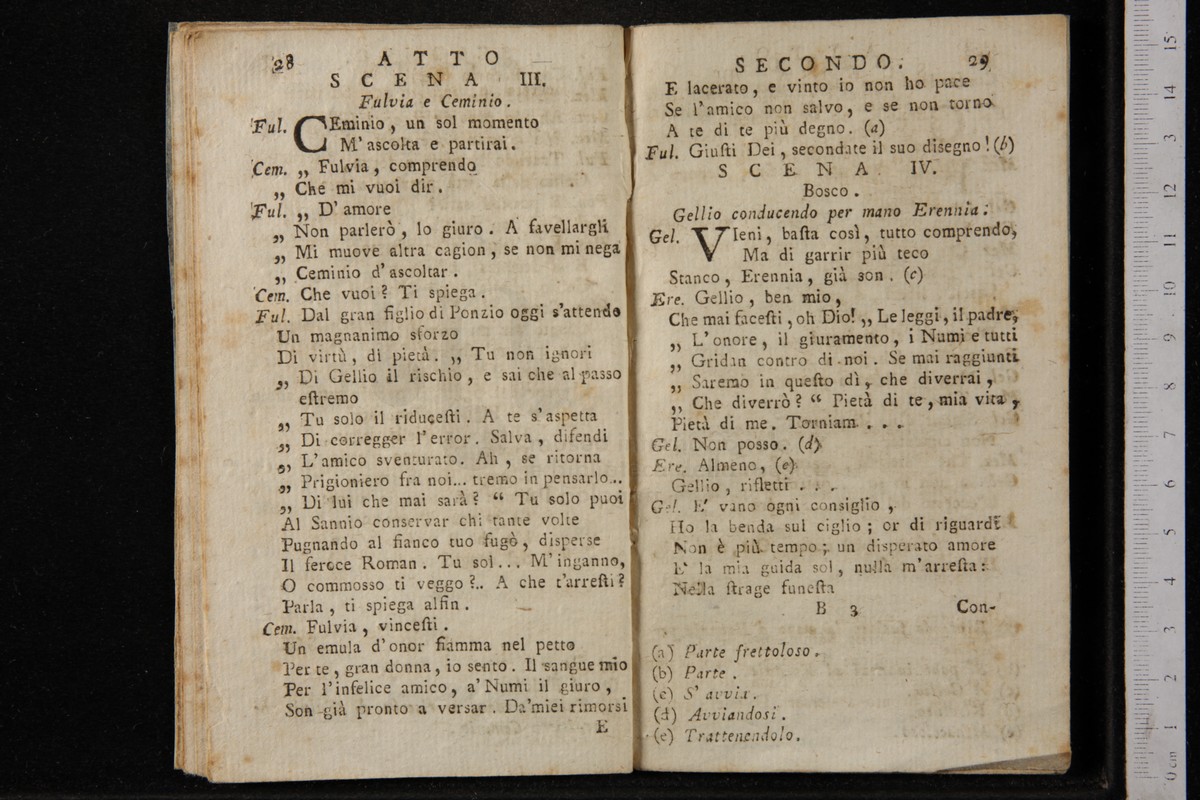 28 ATTO
SCENA III.
Fulvia e Ceminio.
Ful. CEminio, un sol momento
M'ascolta e partirai.
Cem. „ Fulvia, comprendo
„ Che mi vuoi dir.
Ful. „ D'amore
„ Non parlerò, lo giuro. A favellargli
„ Mi muove altra cagion, se non mi nega
„ Ceminio d'ascoltar.
Cem. Che vuoi? Ti spiega.
Ful. Dal gran figlio di Ponzio oggi s'attende
Un magnanimo sforzo
Di virtù, di pietà. „ Tu non ignori
„ Di Gellio il rischio, e sai che al passo
eſtremo
„ Tu solo il riduceſti. A te s'aspetta
„ Di corregger l'error. Salva, difendi
„ L'amico sventurato. Ah, se ritorna
„ Prigioniero fra noi... tremo in pensarlo...
„ Di lui che mai sarà? “ Tu solo puoi
Al Sannio conservar chi tante volte
Pugnando al fianco tuo fugò, disperse
Il feroce Roman. Tu sol... M'inganno,
O commosso ti veggo?.. A che t'arreſti?
Parla, ti spiega alfin.
Cem. Fulvia, vinceſti.
Un emula d'onor fiamma nel petto
Per te, gran donna, io sento. Il sangue mio
Per l'infelice amico, a'Numi il giuro,
Son già pronto a versar. Da'miei rimorsi
E
SECONDO. 29
E lacerato, e vinto io non ho pace
Se l'amico non salvo, e se non torno
A te di te più degno. (a)
Ful. Giuſti Dei, secondate il suo disegno! (b)
SCENA IV.
Bosco.
Gellio conducendo per mano Erennia.
Gel. VIeni, baſta così, tutto comprendo,
Ma di garrir più teco
Stanco, Erennia, già son. (c)
Ere. Gellio, ben mio,
Che mai faceſti, oh Dio! „ Le leggi, il padre,
„ L'onore, il giuramento, i Numi e tutti
„ Gridan contro di noi. Se mai raggiunti
„ Saremo in queſto dì, che diverrai,
„ Che diverrò? “ Pietà di te, mia vita,
Pietà di me. Torniam...
Gel. Non posso. (d)
Ere. Almeno, (e)
Gellio, rifletti...
Gel. E' vano ogni consiglio,
Ho la benda sul ciglio; or di riguardi
Non è più tempo; un disperato amore
E' la mia guida sol, nulla m'arreſta:
Nella ſtrage funeſta
B 3 Con-
(a) Parte frettoloso.
(b) Parte.
(c) S'avvia.
(d) Avviandosi.
(e) Trattenendolo.
15
14
13
12
11
10
9
8
7
6
5
4
3
2
1
0 cm